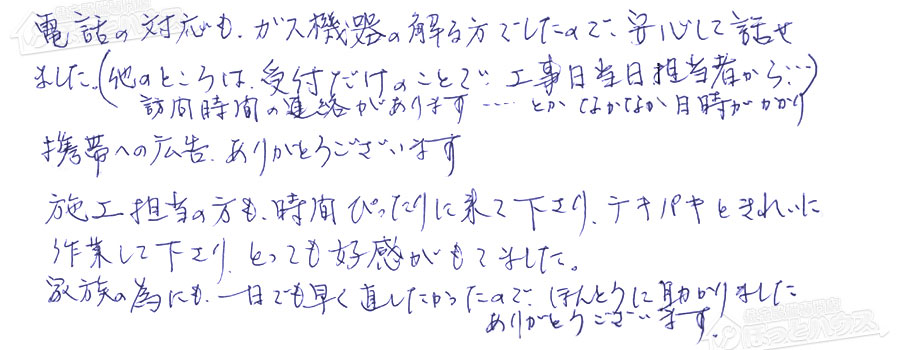 電話の対応も、ガス機器の解る方でしたので、安心して話せ
ました。(他のところは、受付だけのことで、工事日当日担当者から…)
訪問時間の連絡があります……とか なかなか日時がかかり
携帯への広告、ありがとうございます
施工担当の方も、時間ぴったりに来て下さり、テキパキときれいに
作業して下さり、とっても好感がもてました。
家族の為にも、一日でも早く直したかったので、ほんとうに助かりました
ありがとうございます。
ほっとハウス